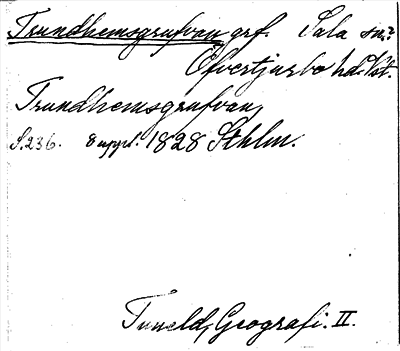 Trundhemsgrufvan grf. Sala sn?
Öfvertjurbo hd. Vstm.
Trundhemsgrufvan,
S. 236. 8 uppl. 1828 Sthlm.
Tuneld, Geografi. II.